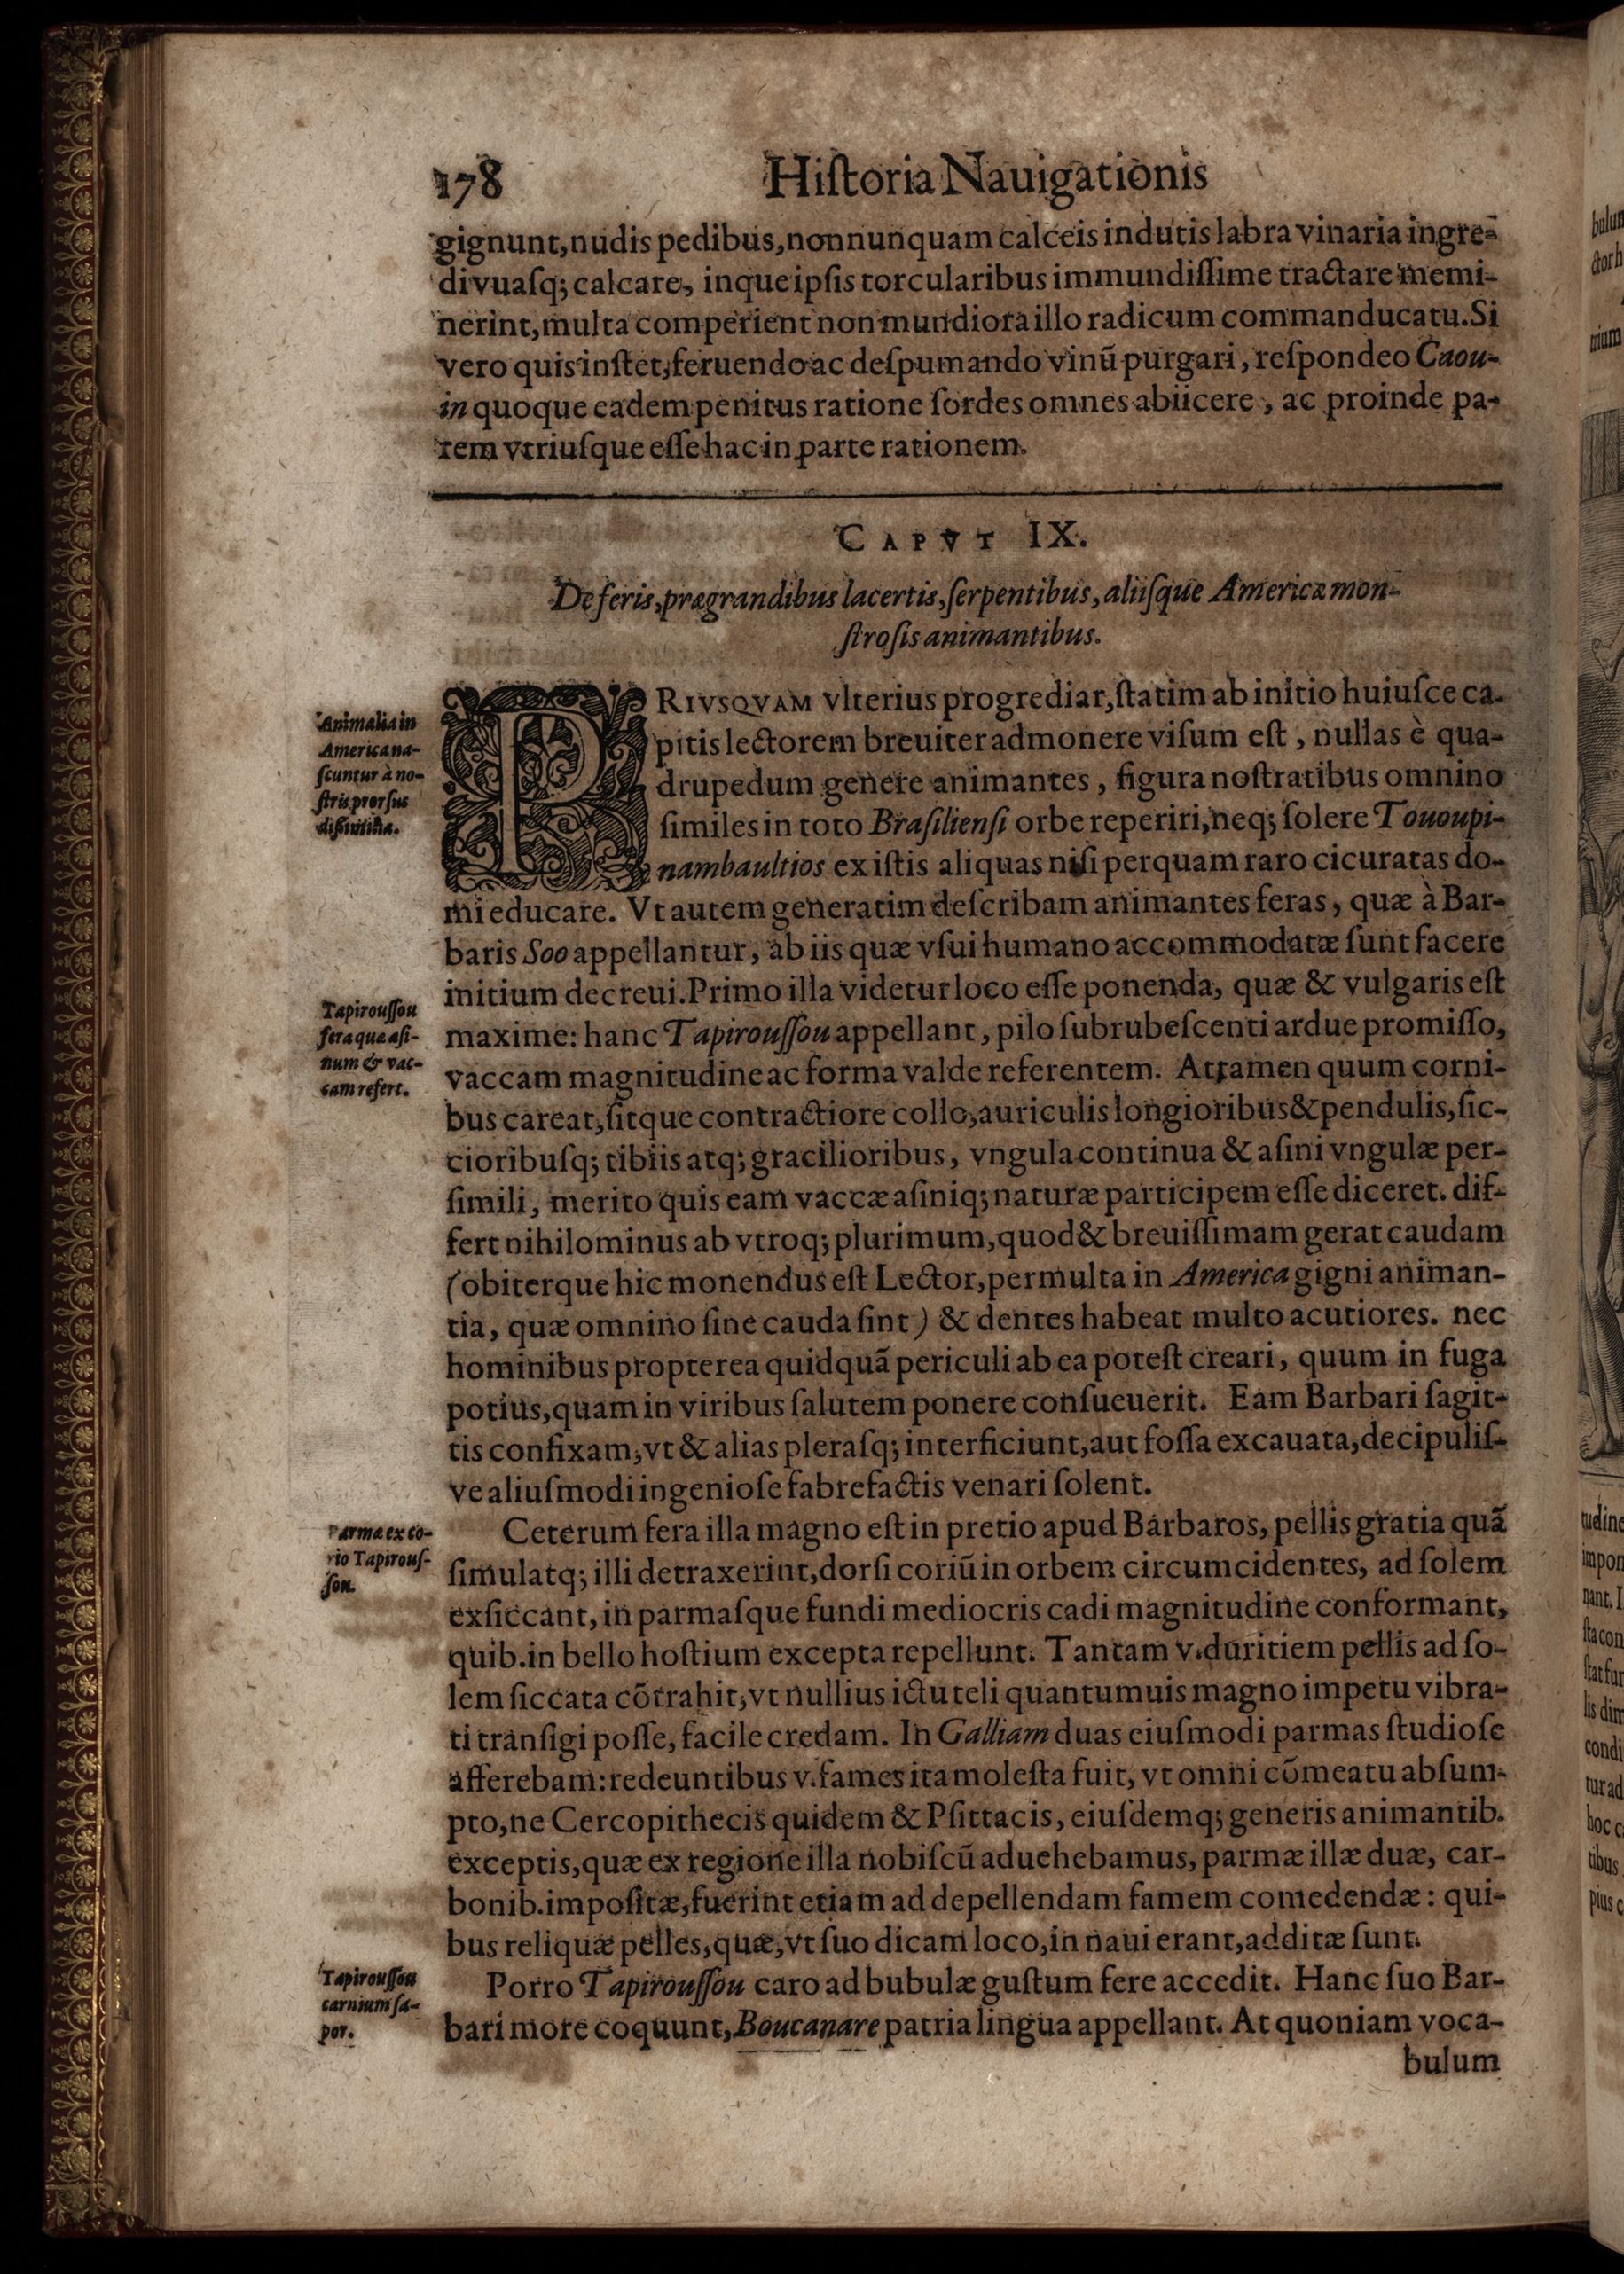 178 Hiſtoria Nauigationis
gignunt, nudis pedibus, nonnunquam calceis indutis labra vinaria ingre-
di vuaſq; calcare, inque ipſis torcularibus immundiſſime tractare memi-
nerint, multa comperient non mundiora illo radicum commanducatu. Si
vero quis inſtet, feruendo ac deſpumando vinū purgari, reſpondeo Caou-
in quoque eadem penitus ratione ſordes omnes abiicere, ac proinde pa-
rem vtriuſque eſſe hac in parte rationem.
CAPVT IX.
De feris, prægrandibus lacertis, ſerpentibus, aliiſque Americæ mon-
ſtroſis animantibus.
Animalia in
America na-
ſcuntur à no-
ſtris prorſus
diſsimilia.
PRIVSQVAM vlterius progrediar, ſtatim ab initio huiuſce ca-
pitis lectorem breuiter admonere viſum eſt, nullas è qua-
drupedum genere animantes, figura noſtratibus omnino
ſimiles in toto Braſilienſi orbe reperiri, neq; ſolere Tououpi-
nambaultios ex iſtis aliquas niſi perquam raro cicuratas do-
mi educare. Vt autem generatim deſcribam animantes feras, quæ à Bar-
baris Soo appellantur, ab iis quæ vſui humano accommodatæ ſunt facere
initium decreui. Primo illa videtur loco eſſe ponenda, quæ & vulgaris eſt
Tapirouſſou
fera quæ aſi-
num & vac-
cam refert.
maxime: hanc Tapirouſſou appellant, pilo ſubrubeſcenti ardue promiſſo,
vaccam magnitudine ac forma valde referentem. Attamen quum corni-
bus careat, ſitque contractiore collo, auriculis longioribus & pendulis, ſic-
cioribuſq; tibiis atq; gracilioribus, vngula continua & aſini vngulæ per-
ſimili, merito quis eam vaccæ aſiniq; naturæ participem eſſe diceret. dif-
fert nihilominus ab vtroq; plurimum, quod & breuiſſimam gerat caudam
(obiterque hic monendus eſt Lector, permulta in America gigni animan-
tia, quæ omnino ſine cauda ſint) & dentes habeat multo acutiores. nec
hominibus propterea quidquā periculi ab ea poteſt creari, quum in fuga
potius, quam in viribus ſalutem ponere conſueuerit. Eam Barbari ſagit-
tis confixam, vt & alias pleraſq; interficiunt, aut foſſa excauata, decipuliſ-
ve aliuſmodi ingenioſe fabrefactis venari ſolent.
Parma ex co-
rio Tapirouſ-
ſou.
Ceterum fera illa magno eſt in pretio apud Barbaros, pellis gratia quā
ſimulatq; illi detraxerint, dorſi coriū in orbem circumcidentes, ad ſolem
exſiccant, in parmaſque fundi mediocris cadi magnitudine conformant,
quib. in bello hoſtium excepta repellunt. Tantam v. duritiem pellis ad ſo-
lem ſiccata cōtrahit, vt nullius ictu teli quantumuis magno impetu vibra-
ti tranſigi poſſe, facile credam. In Galliam duas eiuſmodi parmas ſtudioſe
afferebam: redeuntibus v. fames ita moleſta fuit, vt omni cōmeatu abſum-
pto, ne Cercopithecis quidem & Pſittacis, eiuſdemq; generis animantib.
exceptis, quæ ex regione illa nobiſcū aduehebamus, parmæ illæ duæ, car-
bonib. impoſitæ, fuerint etiam ad depellendam famem comedendæ: qui-
bus reliquæ pelles, quæ, vt ſuo dicam loco, in naui erant, additæ ſunt.
Tapirouſſou
carnium ſa-
por.
Porro Tapirouſſou caro ad bubulæ guſtum fere accedit. Hanc ſuo Bar-
bari more coquunt, Boucanare patria lingua appellant. At quoniam voca-
bulum